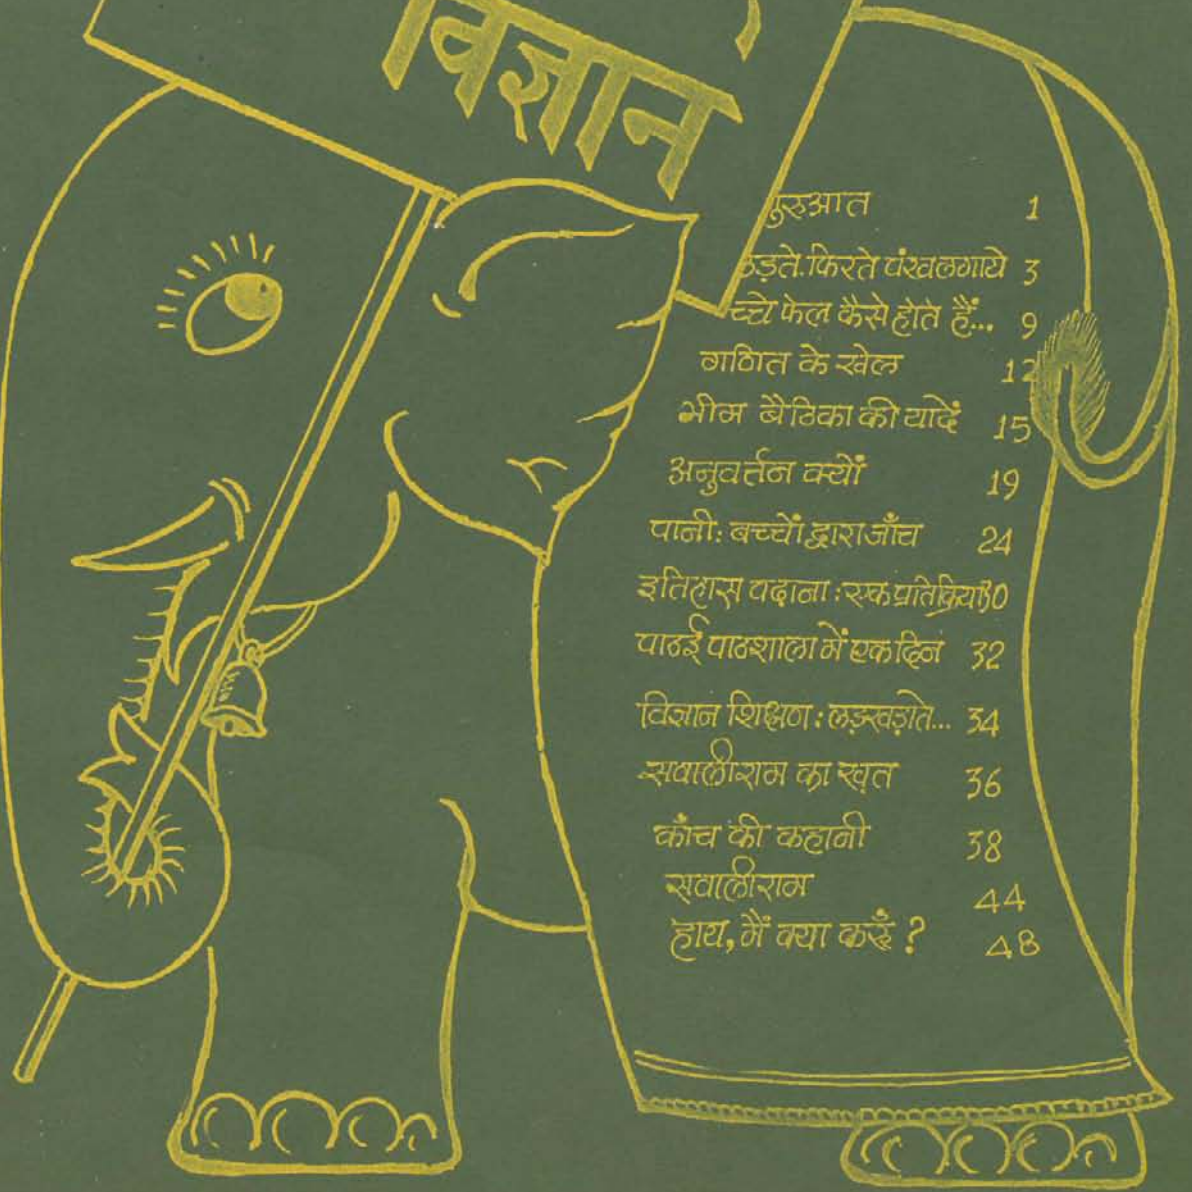 विज्ञान
शुरुआत 1
उड़ते-फिरते पंख लगाये 3
च्चे फेल कैसे होते हैं... 9
गणित के खेल 12
भीम बैठिका की यादें 15
अनुवर्तन क्यों 19
पानी: बच्चों द्वारा जाँच 24
इतिहास पढ़ाना : एक प्रतिक्रिया 30
पाठई पाठशाला में एक दिन 32
विज्ञान शिक्षण : लड़खड़ाते... 34
सवालीराम का ख़त 36
काँच की कहानी 38
सवालीराम 44
हाय, मैं क्या करूँ ? 48